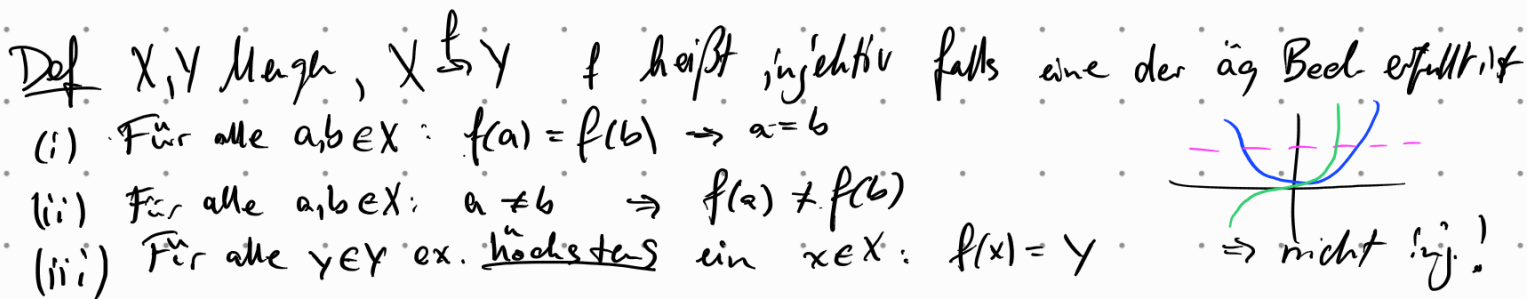 Def X,Y Mengen, X →f Y f heißt injektiv falls eine der äq Bed. erfüllt ist
(i) Für alle a,b ∈ X : f(a) = f(b) ⇒ a = b
(ii) Für alle a,b ∈ X : a ≠ b ⇒ f(a) ≠ f(b)
(iii) Für alle y ∈ Y ex. höchstens ein x ∈ X : f(x) = y ⇒ nicht inj.!